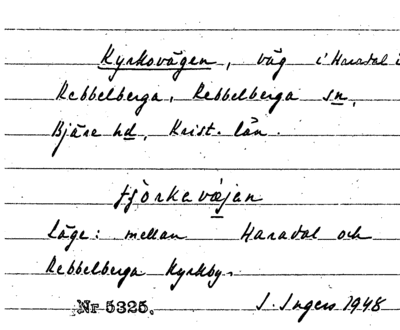 Kyrkovägen, väg i Haradal i
Rebbelberga, Rebbelberga sn,
Bjäre hd, Krist. län.
tjörkavæjan
Läge: mellan Haradal och
Rebbelberga Kyrkby.
Nr 5325. I. Ingers 1948